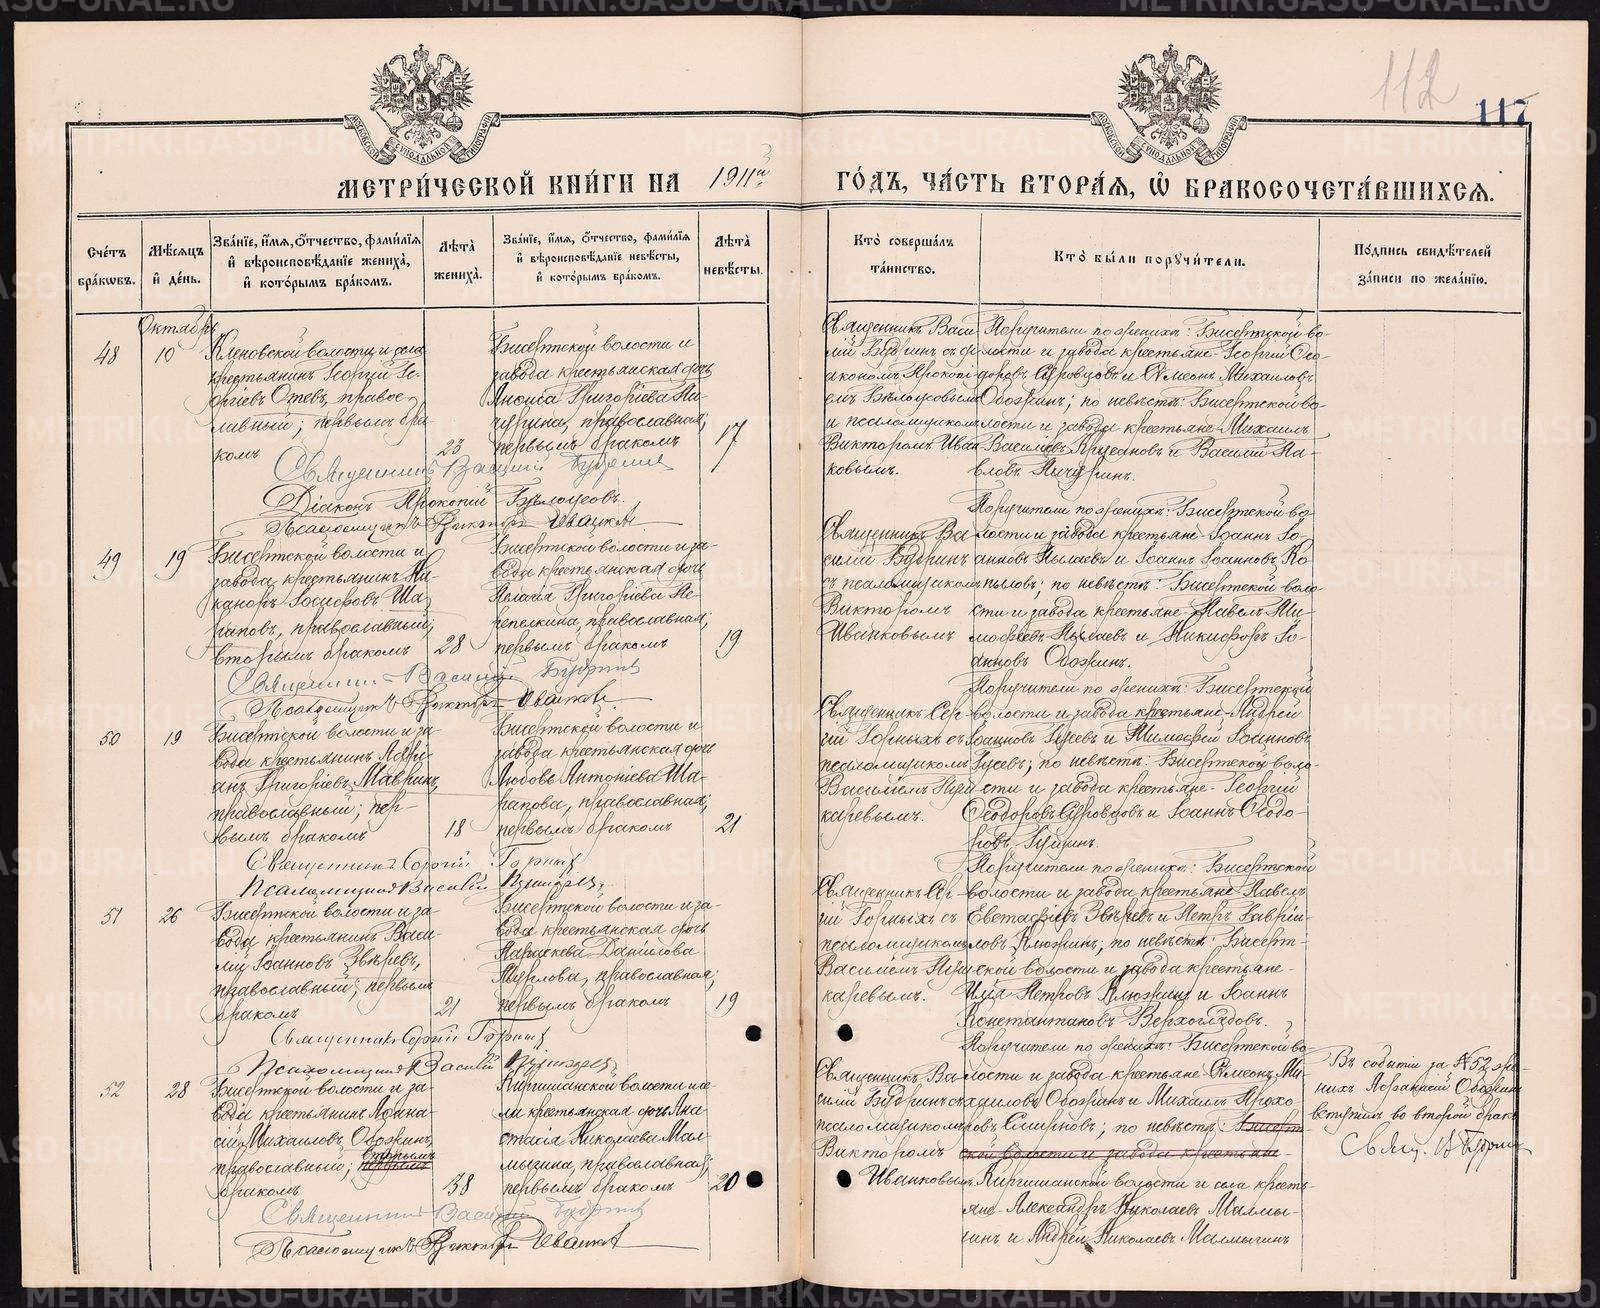 112
117
МОСКОВСКОЙ СУНОДАЛЬНОЙ ТИПОГРАФІИ
МОСКОВСКОЙ СУНОДАЛЬНОЙ ТИПОГРАФІИ
МЕТРИ́ЧЕСКОЙ КНИ́ГИ НА 1911й ГО́ДЪ, ЧА́СТЬ ВТОРА́Я, Ѡ҆ БРАКОСОЧЕТА́ВШИХСЯ.
Сче́тъ бра́кѡвъ.
Мѣ́сяцъ и҆ де́нь.
Зва́нїе, и҆́мя, ѻ҆́тчество, фами́лїя и҆ вѣроисповѣ́данїе жениха̀, и҆ кото́рымъ бра́комъ.
Лѣ́та жениха̀.
Зва́нїе, и҆́мя, ѻ҆́тчество, фами́лїя и҆ вѣроисповѣ́данїе невѣ́сты, и҆ кото́рымъ бра́комъ.
Лѣ́та невѣ́сты.
Кто̀ соверша́лъ та́инство.
Кто̀ бы́ли порꙋчи́тели.
По́дпись свидѣ́телей за́писи по жела́нїю.
Октябрь
48
10
Кленовской волости и села
крестьянинъ Георгій Ге-
оргіевъ Ожевъ, право-
славный; первымъ бра-
комъ
23
Бисертской волости и
завода крестьянская дочь
Анисія Григоріева Пи-
чугина, православная;
первымъ бракомъ
17
Священникъ Васи-
лій Будринъ съ ді-
акономъ Прокопі-
емъ Бѣлоусовымъ
и псаломщикомъ
Викторомъ Иван-
ковымъ.
Поручители по женихѣ: Бисертской во-
лости и завода крестьяне Георгій Ѳео-
доровъ Суровцовъ и Симеонъ Михаиловъ
Обожинъ; по невѣстѣ: Бисертской во-
лости и завода крестьяне Михаилъ
Василіевъ Крусановъ и Василій Па-
вловъ Пичугинъ.
Священникъ Василій Будринъ
Діаконъ Прокопій Бѣлоусовъ.
Псаломщикъ Викторъ Иванковъ
49
19
Бисертской волости и
завода крестьянинъ Ни-
каноръ Іосифовъ Ша-
раповъ, православный;
вторымъ бракомъ
28
Бисертской волости и за-
вода крестьянская дочь
Пелагія Григоріева Пе-
репелкина, православная;
первымъ бракомъ
19
Священникъ Ва-
силій Будринъ
съ псаломщикомъ
Викторомъ
Иванковымъ
Поручители по женихѣ: Бисертской во-
лости и завода крестьяне Іоаннъ Іо-
анновъ Пылаевъ и Іоаннъ Іоанновъ Ко-
пыловъ; по невѣстѣ: Бисертской воло-
сти и завода крестьяне Павелъ Ти-
мофеевъ Пылаевъ и Никифоръ Іо-
анновъ Обожинъ.
Священникъ Василій Будринъ
Псаломщикъ Викторъ Иванковъ.
50
19
Бисертской волости и за-
вода крестьянинъ Адрі-
анъ Григоріевъ Мавринъ,
православный; пер-
вымъ бракомъ
18
Бисертской волости и
завода крестьянская дочь
Любовь Антоніева Ша-
рапова, православная;
первымъ бракомъ
21
Священникъ Сер-
гій Горныхъ съ
псаломщикомъ
Василіемъ Пуш-
каревымъ.
Поручители по женихѣ: Бисертской
волости и завода крестьяне Андрей
Іоанновъ Гусевъ и Тимофей Іоанновъ
Гусевъ; по невѣстѣ: Бисертской воло-
сти и завода крестьяне Георгій
Ѳеодоровъ Суровцовъ и Іоаннъ Ѳеодо-
ровъ Гущинъ.
Священникъ Сергій Горныхъ
Псаломщикъ Василій Пушкаревъ
51
26
Бисертской волости и за-
вода крестьянинъ Васи-
лій Іоанновъ Звѣревъ,
православный; первымъ
бракомъ
21
Бисертской волости и за-
вода крестьянская дочь
Параскева Даніилова
православная;
первымъ бракомъ
19
Священникъ Сер-
гій Горныхъ съ
псаломщикомъ
Василіемъ Пуш-
каревымъ.
Поручители по женихѣ: Бисертской
волости и завода крестьяне Павелъ
Евстафіевъ Звѣревъ и Петръ Гавріи-
ловъ Клюжинъ; по невѣстѣ: Бисерт-
ской волости и завода крестьяне
Илія Петровъ Клюжинъ и Іоаннъ
Константиновъ Верхоглядовъ.
Священникъ Сергій Горныхъ
Псаломщикъ Василій Пушкаревъ
52
28
Бисертской волости и за-
вода крестьянинъ Аѳана-
сій Михаиловъ Обожинъ,
православный; первымъ вторымъ
бракомъ
38
Киргишанской волости и се-
ла крестьянская дочь Ана-
стасія Николаева Мал-
мыгина, православная;
первымъ бракомъ
20
Священникъ Ва-
силій Будринъ съ
псаломщикомъ
Викторомъ
Иванковымъ
Поручители по женихѣ: Бисертской во-
лости и завода крестьяне Симеонъ Ми-
хаиловъ Обожинъ и Михаилъ Прохо-
ровъ Смирновъ; по невѣстѣ: Бисерт-
ской волости и завода крестьяне
Киргишанской волости и села кресть-
яне Александръ Николаевъ Малмы-
гинъ и Андрей Николаевъ Малмыгинъ
Въ событіи за №52 же-
нихъ Аѳанасій Обожинъ
вступилъ во второй бракъ
Свящ. В Будринъ
Священникъ Василій Будринъ
Псаломщикъ Викторъ Иванковъ
METRIKI.GASO-URAL.RU